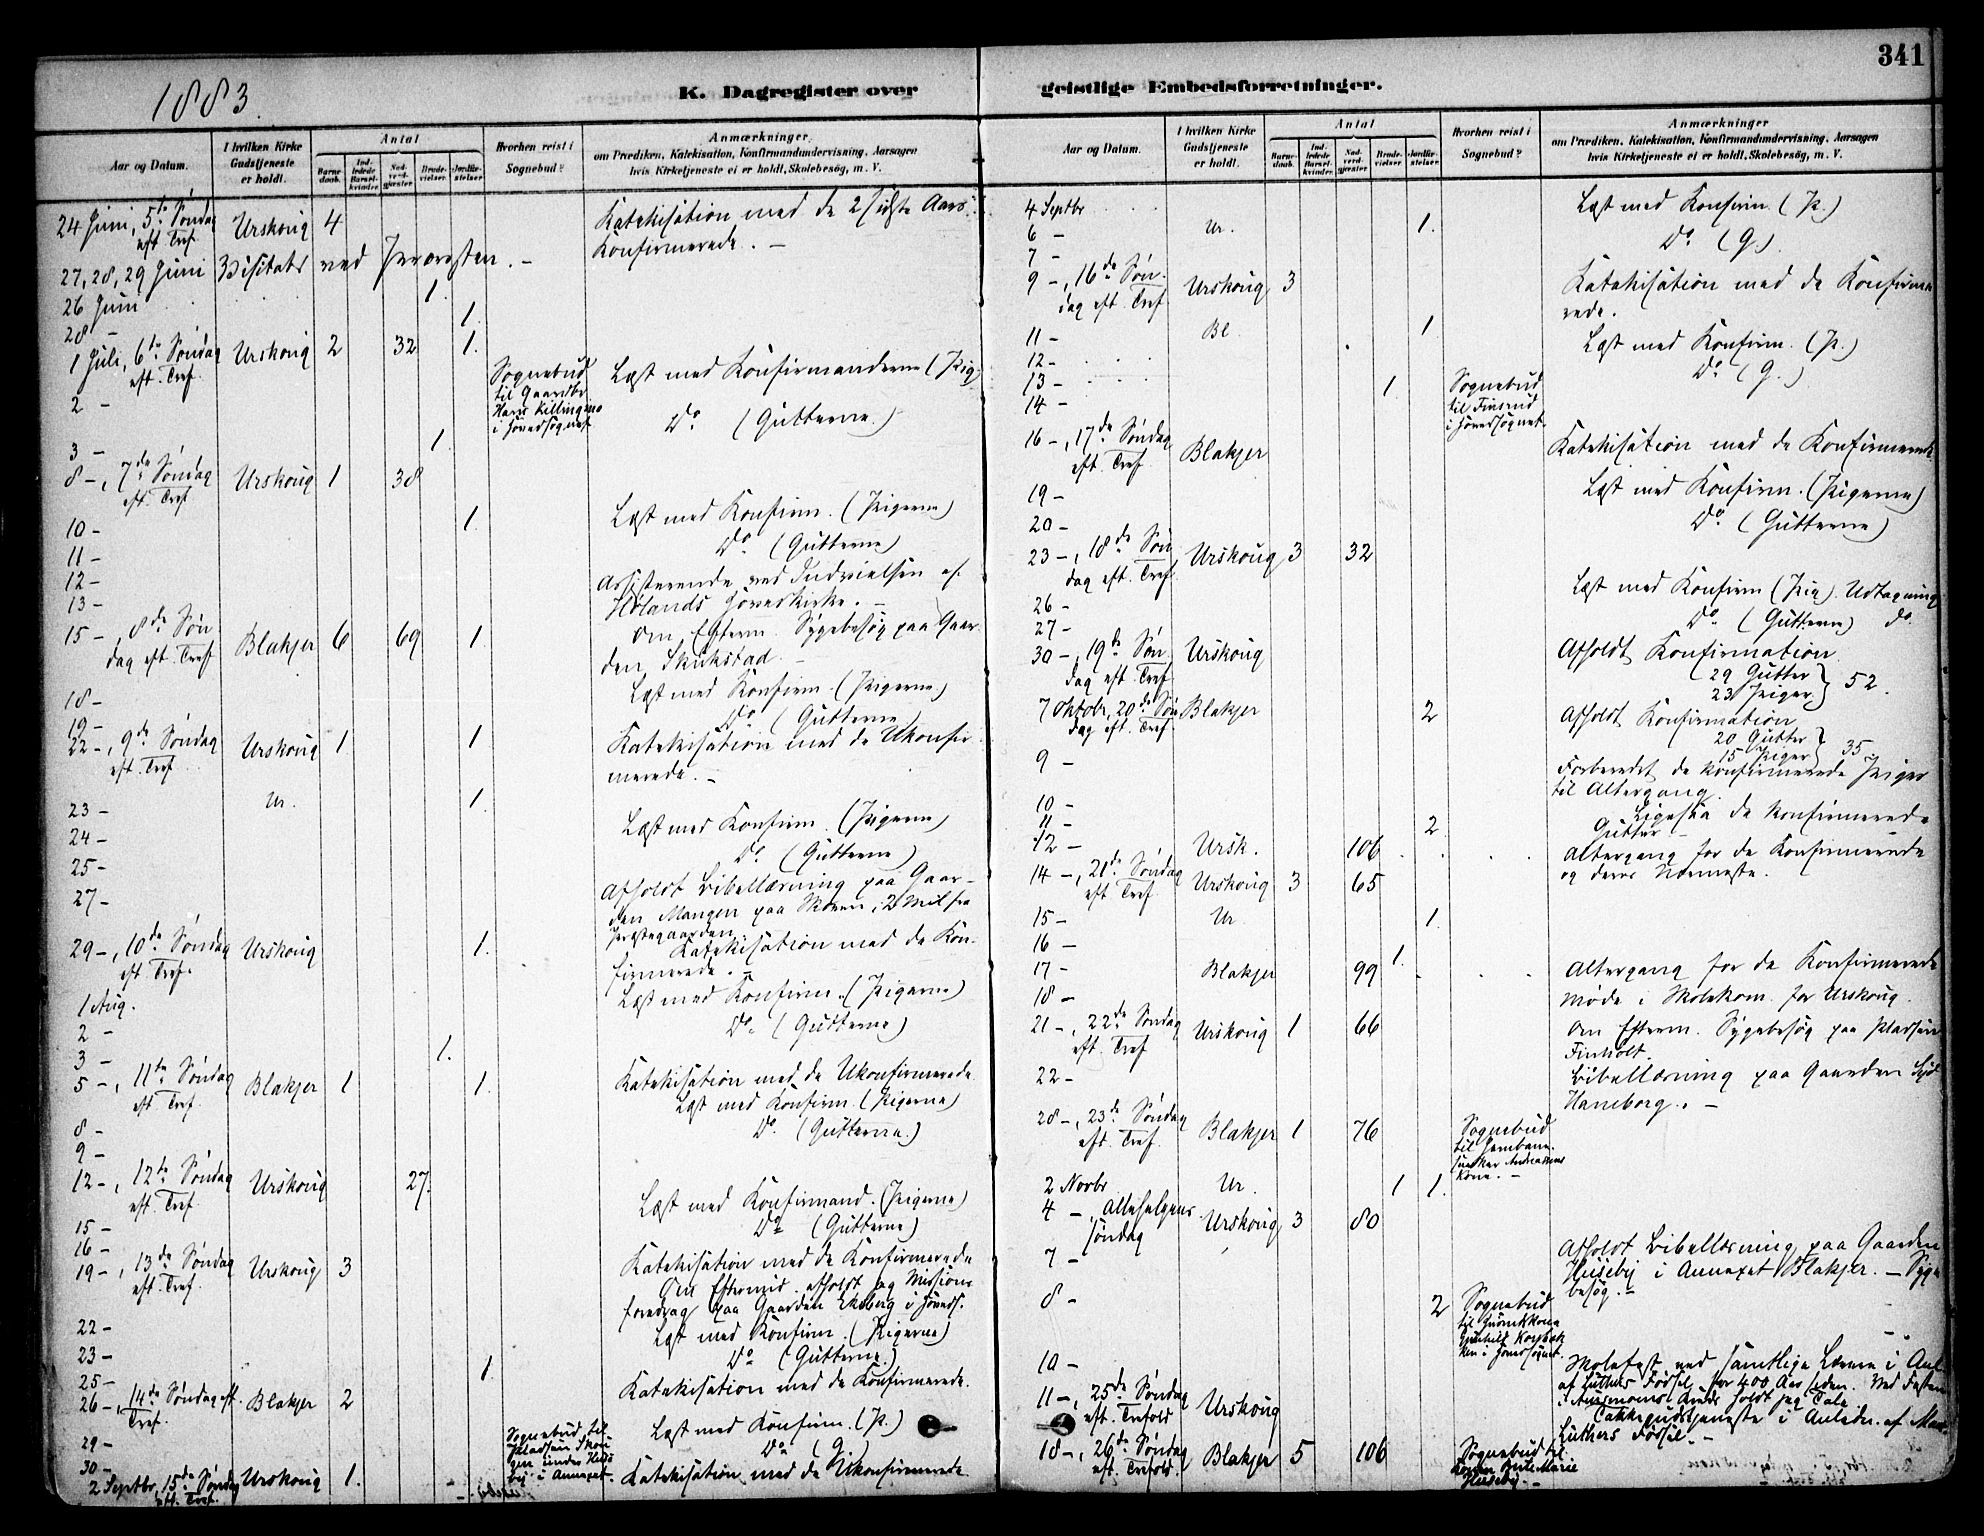 341
1883.
K. Dagregister over
Aar og Datum.
I hvilken Kirke Gudstjeneste er holdt.
Antal
Barnedaab.
Indledede Barselkvinder.
Nadverdgjæster
Brudevielser.
Jordfæstelser
Hvorhen reist i Sognebud?
Anmærkninger.
om Prædiken, Katekisation, Konfirmandundervisning, Aarsagen
hvis Kirketjeneste ei er holdt, Skolebesøg, m. V.
24 Juni, 5te Søndag eft. Tref. Urskoug 4 Katekisation med de 2 sidste Aars
Konfirmerede. –
27, 28, 29 Juni Visitats ved Provsten. –
26 Juni 1.
28 – 1.
1 Juli, 6te Søndag eft. Tref. Urskoug 2 32 1.
2 – Sognebud til Gaardbr. Hans Killingmo i Hovedsognet Læst med Konfirmanderne (Pig.)
3 – 1. Do (Gutterne.)
8 –, 7de Søndag eft. Tref Urskoug 1 38
10 – 1. Læst med Konfirm. (Pigerne)
11 – Do (Gutterne)
12 –
13 – Assisterende ved Indvielsen af
Hølands Hovedkirke. –
15 –, 8de Søndag eft. Tref Blakjer 6 69 1. Om Efterm. Sygebesøg paa Gaarden
18 – Læst med Konfirm. (Pigerne)
19 – Do (Gutterne)
22 –, 9de Søndag eft. Tref. Urskoug 1 1 Katekisation med de Ukonfirmerede. –
23 – Ur. 1.
24 – Læst med Konfirm. (Pigerne)
25 – Do. (Gutterne)
27 – Afholdt Bibellæsning paa Gaarden
Mangen paa Skoven, 2 Mil fra
Præstegaarden
29 –, 10de Søndag eft. Tref. Urskoug 1. Katekisation med de Konfirmerede. –
1 Aug. Læst med Konfirm. (Pigerne)
2 – Do. (Gutterne)
3 – 1.
5 –, 11te Søndag eft. Tref. Blakjer 1 1. Katekisation med de Ukonfirmerede
8 – Læst med Konfirm. (Pigerne)
9 – Do. (Gutterne.)
12 –, 12te Søndag eft. Tref. Urskoug 27.
15 – Læst med Konfirmand. (Pigerne)
16 – Do (Gutterne)
19 –, 13de Søndag eft. Tref. Urskoug 3 Katekisation med de Konfirmerede
Om Eftermid. afholdt og Missions
foredrag paa Gaarden Ekeberg i Hoveds.
22 – Læst med Konfirm. (Pigerne)
23 – Do (Gutterne.)
25 – 1.
26 –, 14de Søndag eft. Tref. Blakjer 2 Katekisation med de Konfirmerede.
29 – Læst med Konfirm. (P.)
30 – Sognebud til Pladsen i Annexet. Do (G.)
2 Septbr, 15de Søndag eft. Tref. Urskoug 1. Katekisation med de Ukonfirmerede
geistlige Embedsforretninger.
Aar og Datum.
I hvilken Kirke Gudstjeneste er holdt.
Antal
Barnedaab.
Indledede Barselkvinder.
Nadverdgjæster
Brudevielser
Jordfæstelser
Hvorhen reist i Sognebud?
Anmærkninger
om Prædiken, Katekisation, Konfirmandundervisning, Aarsagen
hvis Kirketjeneste ei er holdt, Skolebesøg, m. V.
4 Septbr Læst med Konfirm. (P.)
6 – Ur. 1. Do. (G.)
7 –
9 –, 16de Søndag eft. Tref Urskoug 3 Katekisation med de Konfirmerede.
11 – Bl. 1 Læst med Konfirm. (P.)
12 – Do (G.)
13 – 1
14 – Sognebud til Finsrud i Hovedsognet.
16 –, 17de Søndag eft. Tref. Blakjer Katekisation med de Konfirmerede
19 – Læst med Konfirm. (Pigerne)
20 – Do. (Gutterne)
23 –, 18de Søndag eft. Tref. Urskoug 3 32
26 – Læst med Konfirm (Pig.) Udtagning
27 – Do (Gutterne) do.
30 –, 19de Søndag eft. Tref. Urskoug Afholdt Konfirmation
29 Gutter
23 Piger } 52.
7 Oktobr, 20de Søndag eft. Tref. Blakjer 2 Afholdt Konfirmation
20 Gutter
15 Piger } 35
9 – Forberedet de konfirmerede Piger
til Altergang.
10 – Ligesaa de konfirmerede
Gutter –
11 – 2
12 – Ursk. 106 Altergang for de Konfirmerede
og deres Nærmeste.
14 –, 21de Søndag eft. Tref Urskoug 3 65
15 – Ur. 1.
16 – 1.
17 – Blakjer 99 Altergang for de Konfirmerede
18 – Møde i Skolekom. for Urskoug.
21 –, 22de Søndag eft. Tref Urskoug 1 66 Om Efterm. Sygebesøg paa Pladsen
Finholt.
22 – Bibellæsning paa Gaarden
Haneborg. –
28 –, 23de Søndag eft. Tref. Blakjer 1 76 Sognebud til Andreasens Kone. –
2 Novbr Ur. 1 1.
4 –, Allehelgens Søndag Urskoug 3 80
7 – Afholdt Bibellæsning paa Gaarden
Huseby i Annexet Blakjer. – Sygebesøg. –
8 – 2 Sognebud til i Hovedsognet.
10 – Skolefest ved samtlige Lærere i Anl.
af Luthers Fødsel for 400 Aar siden. Ved Festen
i Aursmoens Kreds holdt jeg Tale
11 –, 25de Søndag eft. Trefold Urskoug Takkegudstjeneste i Anledn. af Mart.
Luthers Fødsel. –
18 –, 26de Søndag eft. Trefold. Blakjer 5 106 Sognebud til Marie Huseby. –